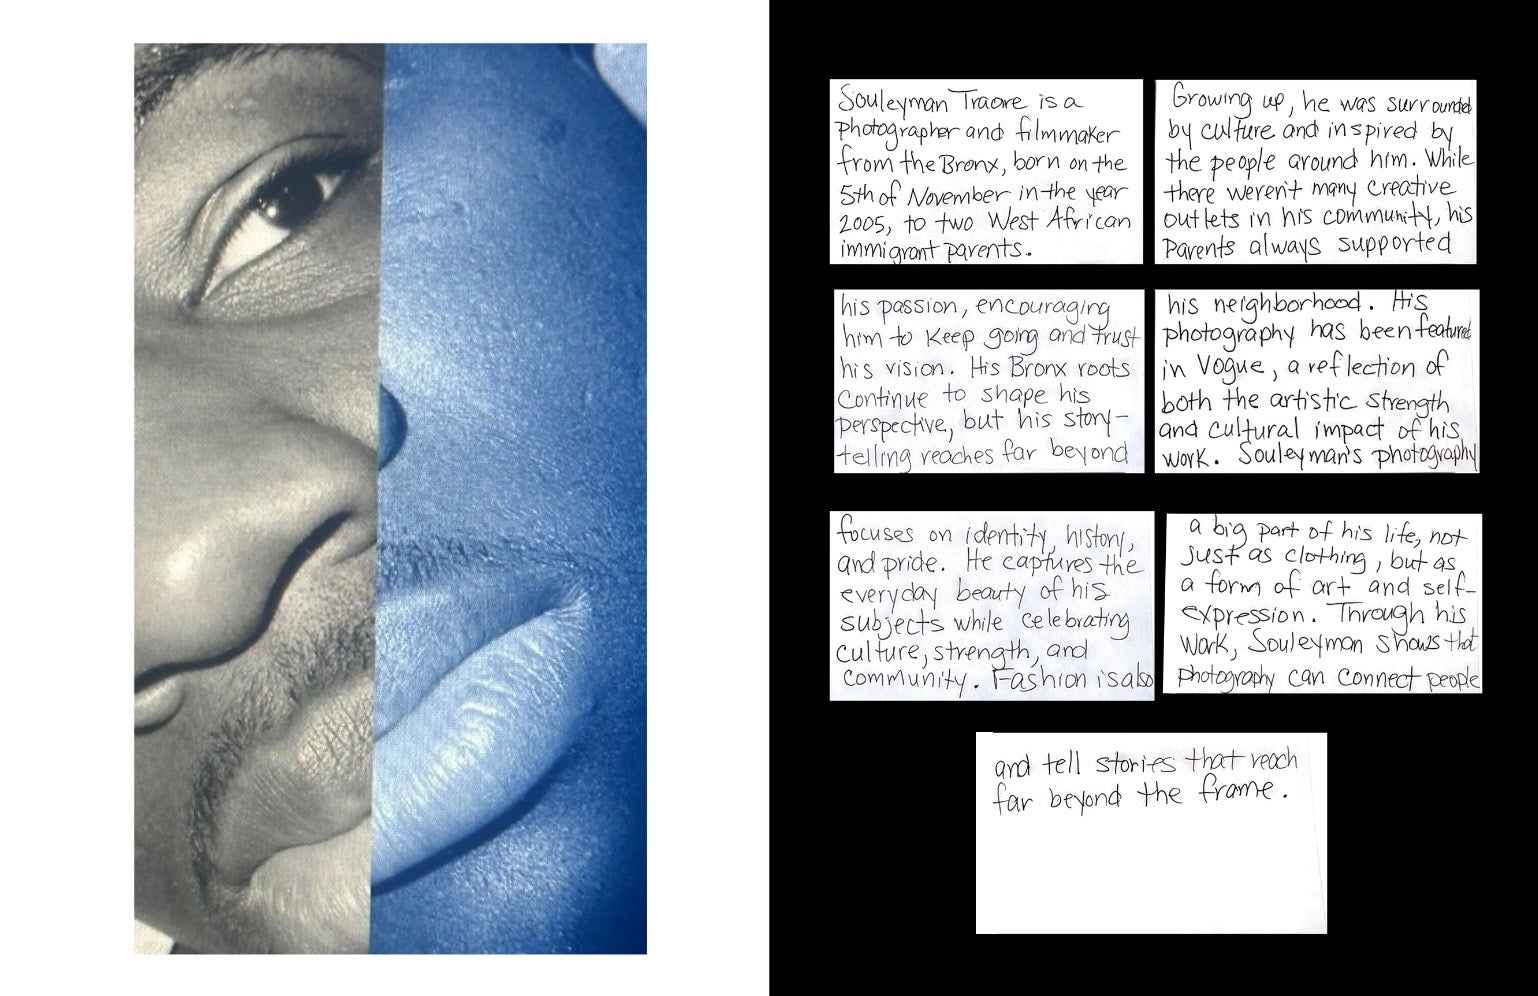 Souleyman Traore is a
photographer and filmmaker
from the Bronx, born on the
5th of November in the year
2005, to two West African
immigrant parents.
Growing up, he was surrounded
by culture and inspired by
the people around him. While
there weren't many creative
outlets in his community, his
parents always supported
his passion, encouraging
him to keep going and trust
his vision. His Bronx roots
continue to shape his
perspective, but his story-
telling reaches far beyond
his neighborhood. His
photography has been featured
in Vogue, a reflection of
both the artistic strength
and cultural impact of his
work. Souleyman's photography
focuses on identity, history,
and pride. He captures the
everyday beauty of his
subjects while celebrating
culture, strength, and
community. Fashion is also
a big part of his life, not
just as clothing, but as
a form of art and self-
expression. Through his
work, Souleyman shows that
photography can connect people
and tell stories that reach
far beyond the frame.